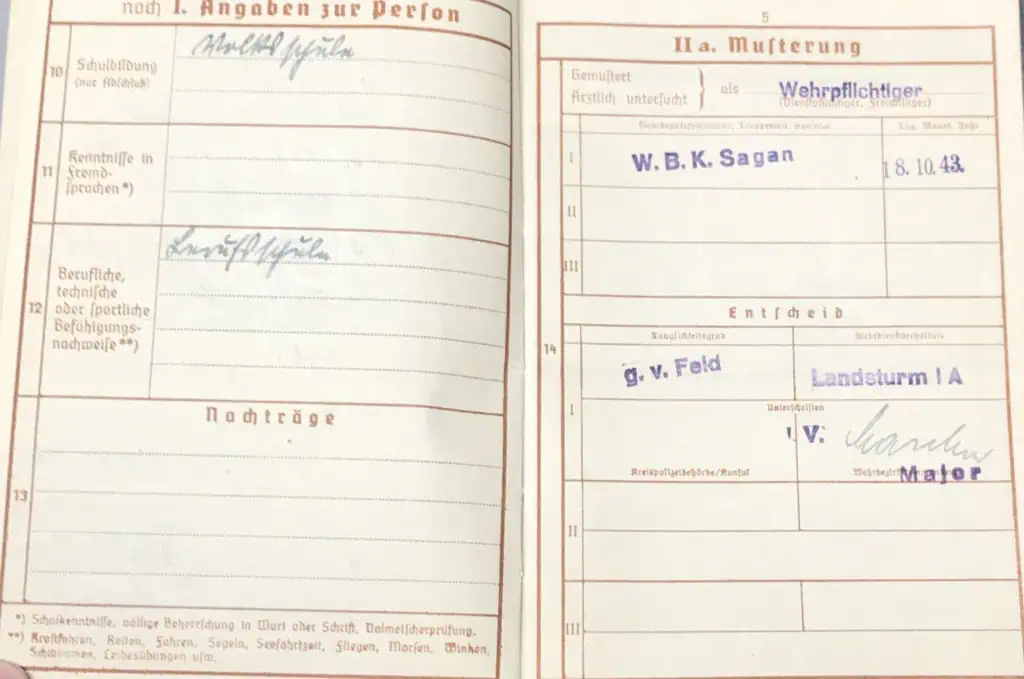 noch I. Angaben zur Perſon
10
Schulbildung
(nur Abſchluß)
Volksſchule
11
Kenntniſſe in
Fremd-
ſprachen *)
12
Berufliche,
techniſche
oder ſportliche
Befähigungs-
nachweiſe **)
Berufsſchule
Nachträge
13
*) Schulkenntniſſe, völlige Beherrſchung in Wort oder Schrift, Dolmetſcherprüfung.
**) Kraftfahren, Reiten, Fahren, Segeln, Seefahrtzeit, Fliegen, Morſen, Winken,
Schwimmen, Leibesübungen uſw.
5
IIa. Muſterung
Gemuſtert
Ärztlich unterſucht
als
Wehrpflichtiger
(Dienſtpflichtiger, Freiwilliger)
Tag, Monat, Jahr
I
W. B. K. Sagan
18. 10. 43.
II
III
Entſcheid
14
Tauglichkeitsgrad
Wehrdienſtverhältnis
g. v. Feld
Landsturm I A
I
Unterſchriften
V.
Kreispolizeibehörde/Konſul
Major
II
III